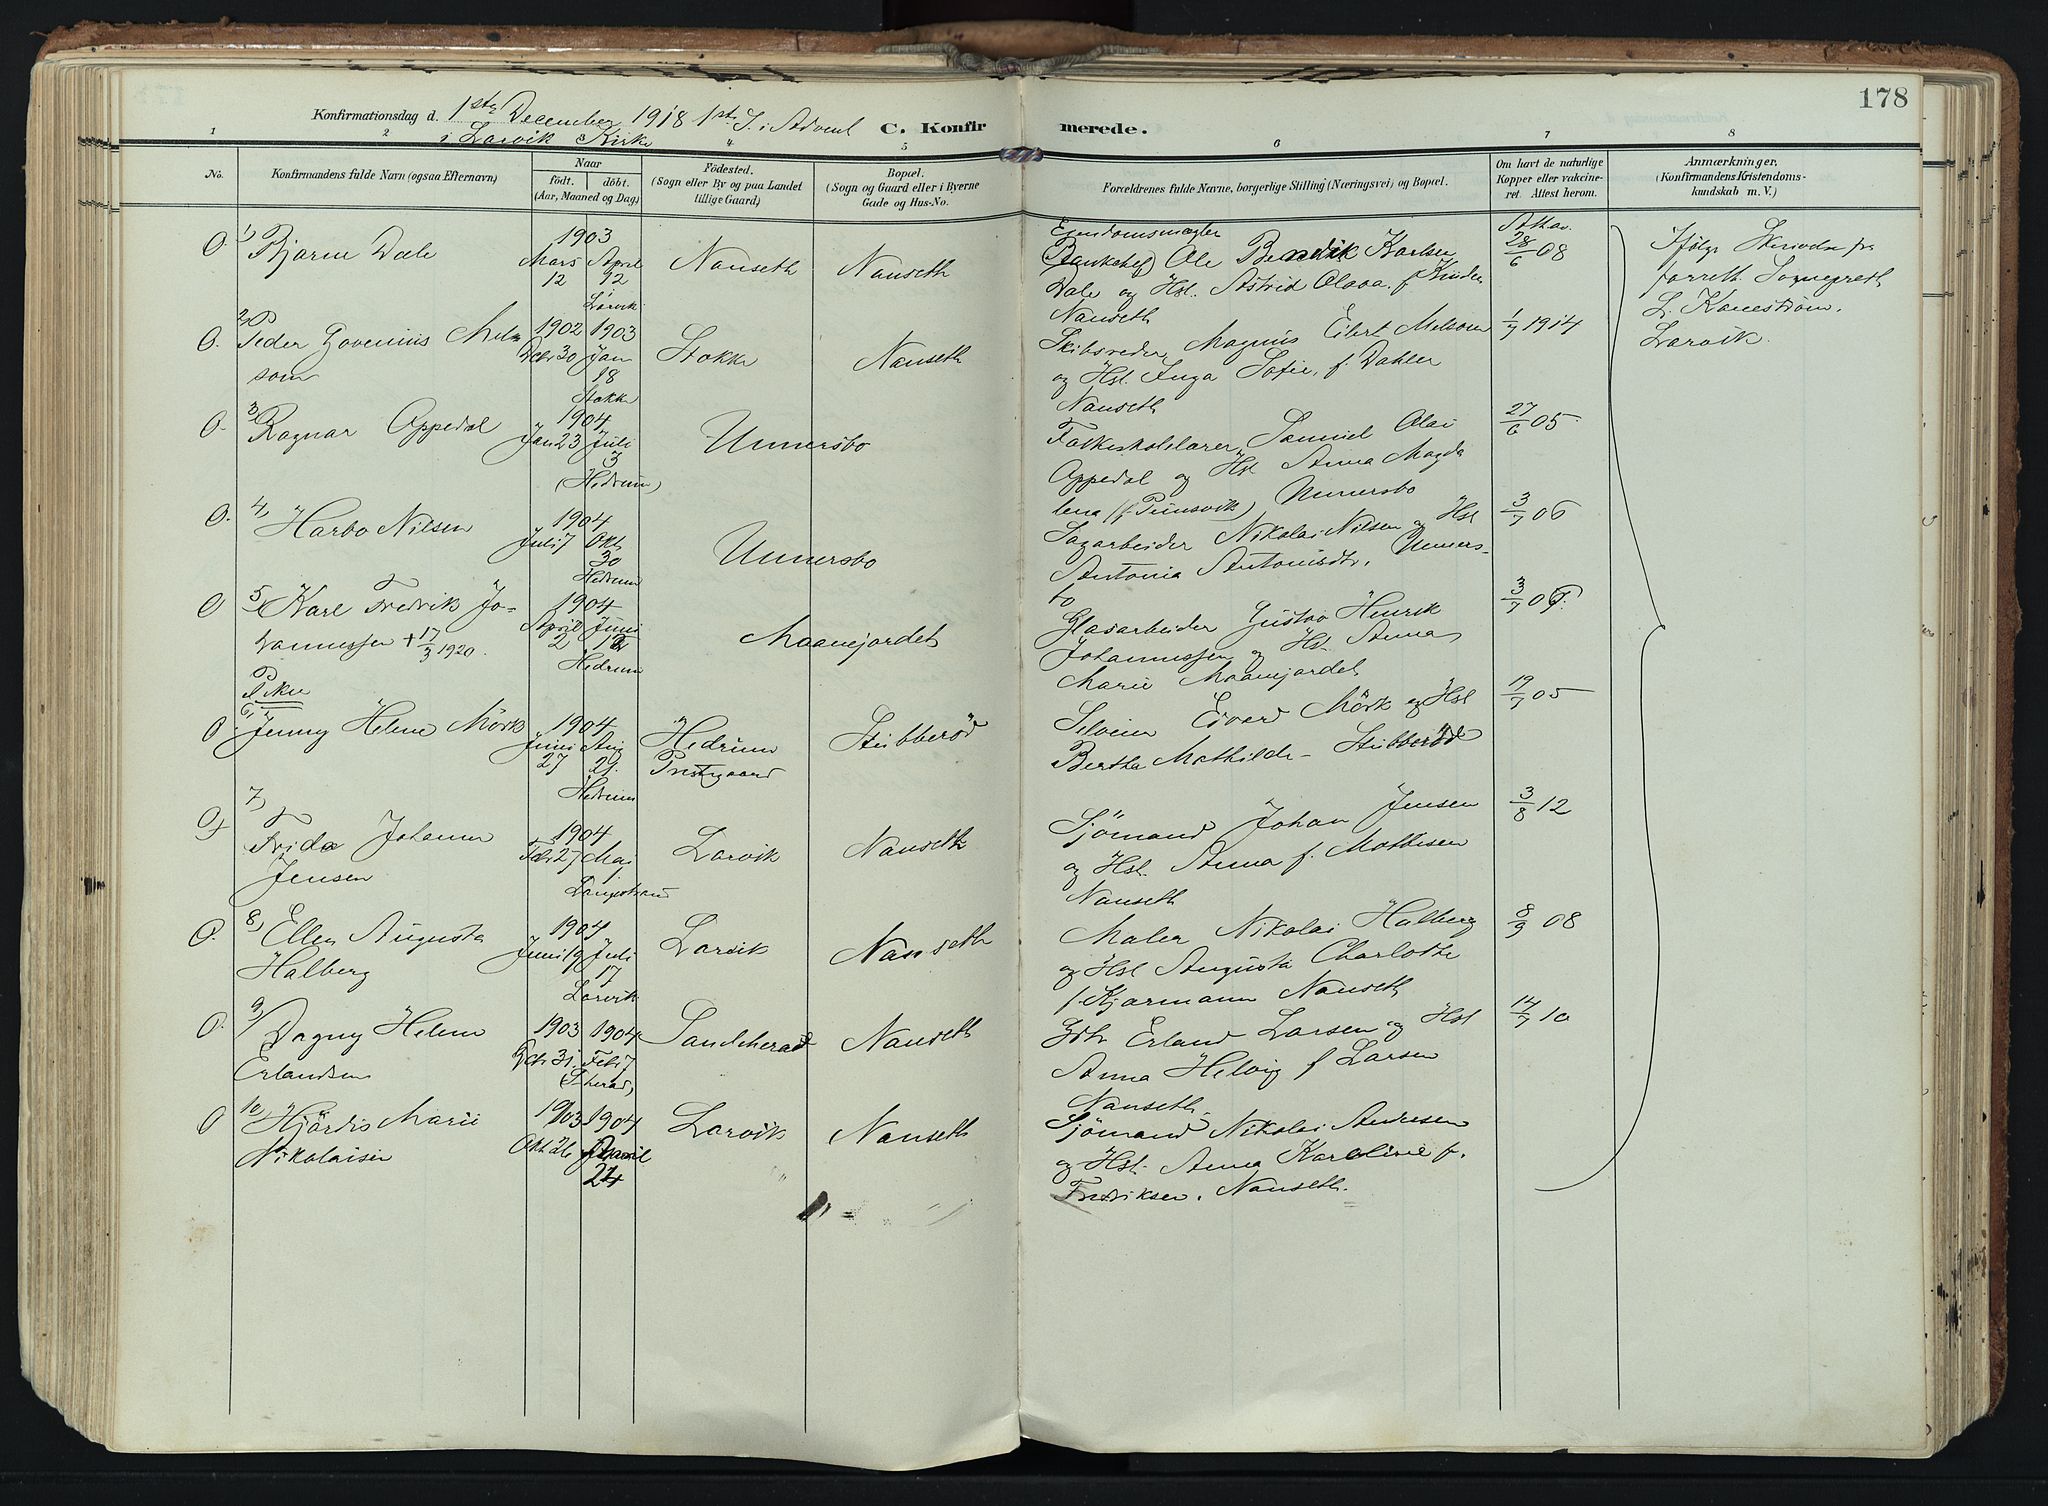 178
Konfirmationsdag d. 1ste December 1918 1ste S. i Advent C. Konfirmerede.
i Larvik Kirke
1 2 4 5 6 7 8
No.
Konfirmandens fulde Navn (ogsaa Efternavn)
Naar
födt. döbt.
(Aar, Maaned og Dag)
Födested.
(Sogn eller By og paa Landet
tillige Gaard)
Bopæl.
(Sogn og Gaard eller i Byerne
Gade og Hus-No.
Forældrenes fulde Navne, borgerlige Stilling (Næringsvei) og Bopæl.
Om havt de naturlige
Kopper eller vakcine-
ret. Attest herom.
Anmærkninger,
(Konfirmandens Kristendoms-
kundskab m. V.)
O. 1) Bjarne Dale
1903
Mars 12 April 12
i Larvik
Nanseth Nanseth
Eiendomsmægler
(Bankchef) Ole Bendik Karlsen
Dale og Hst. Astrid Olava f.
Nanseth
28/6 08
Ifölge Skrivelse fra
forrett. Sogneprest
L. Kanestrøm.
Larvik.
O. 2) Peder Govenius Melsom
1902 1903
30 Jan 18
Stokke
Stokke Nanseth
Skibsreder Magnus Eilert Melsom
og Hst. Inga Sofie, f. Dahler
Nanseth
1/7 1914
O. 3) Ragnar Appedal
1904
Jan 23 Juli 3
(Hedrum)
Unnersbo
Folkeskolelærer Samuel Olai
Appedal og Hst Anna Magda
lena (f. ) Unnersbo
27/6 05
O. 4) Harbo Nilsen
1904
Juli 7 Okt 30
Hedrum
Unnersbo
Sagarbeider Nikolai Nilsen og Hst
Antonia Antonisdtr. Unners-
bo
3/7 06
O 5) Karl Fredrik Jo-
hannessen + 17/3 1920.
1904
April 2 Juni 12
Hedrum
Maanejordet
Glasarbeider Gustav Henrik
Johannessen og Hst. Anna
Marie Maanejordet
3/7 09.
Piker
O 6) Jenny Helene Mörk
1904
Juni 27 Aug 21.
Hedrum
Hedrum
Prestegaard
Stubberöd
Selveier Edvard Mörk og Hst
Bertha Mathilde - Stubberöd
19/7 05
O 7) Frida Johanne
Jensen
1904
Feb 27 Maj
Langestrand
Larvik Nanseth
Sjömand Johan Jensen
og Hst. Anna f. Mathisen
Nanseth
3/8 12
O. 8) Ellen Augusta
Halberg
1904
Juni 19 Juli 17
Larvik
Larvik Nanseth
Maler Nikolai Halberg
og Hst Augusta Charlotte
f. Kjærmann Nanseth
8/9 08
O. 9) Dagny Helene
Erlandsen
1903 1904
31. Feb 7
(S-herad)
Sandeherad Nanseth
Gbr Erland Larsen og Hst
Anna Helvig f Larsen
Nanseth.
14/7 10
O 10) Hjördis Marie
Nikolaisen
1903 1904
Okt 26 April 24
Larvik Nanseth
Sjömand Nikolai Andresen
og Hst. Anna Karoline f.
Fredriksen. Nanseth.